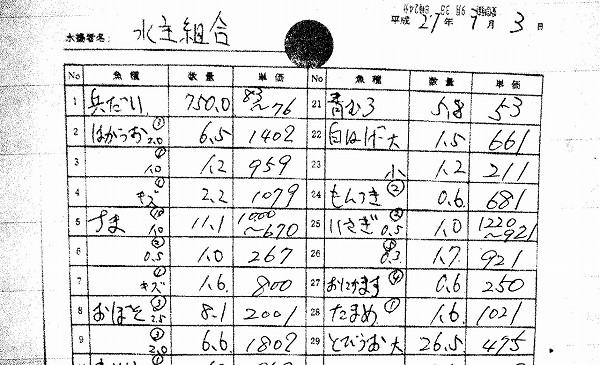 水揚者名: 水主組合
平成 27年 9月 3日
No 魚種 数量 単価 No 魚種 数量 単価
1 兵だい 750.0 83〜76 21 青むろ 5.8 53
2 はかつお ③ 2.0 6.5 1402 22 白はげ大 1.5 661
3 ① 1.0 1.2 959 23 小 1.2 211
4 ① キズ 2.2 1079 24 もんつき ② 0.6 681
5 すま ⑩ 1.0 11.1 1000〜670 25 いさぎ ② 0.5 1.0 1220〜921
6 ② 0.5 1.0 267 26 0.3 1.7 921
7 ① キズ 1.6 800 27 おにかます ④ 0.6 250
8 おぼそ ③ 2.5 8.1 2001 28 だるめ ① 1.6 1021
9 ③ 2.0 6.6 1802 29 とびうお大 26.5 475